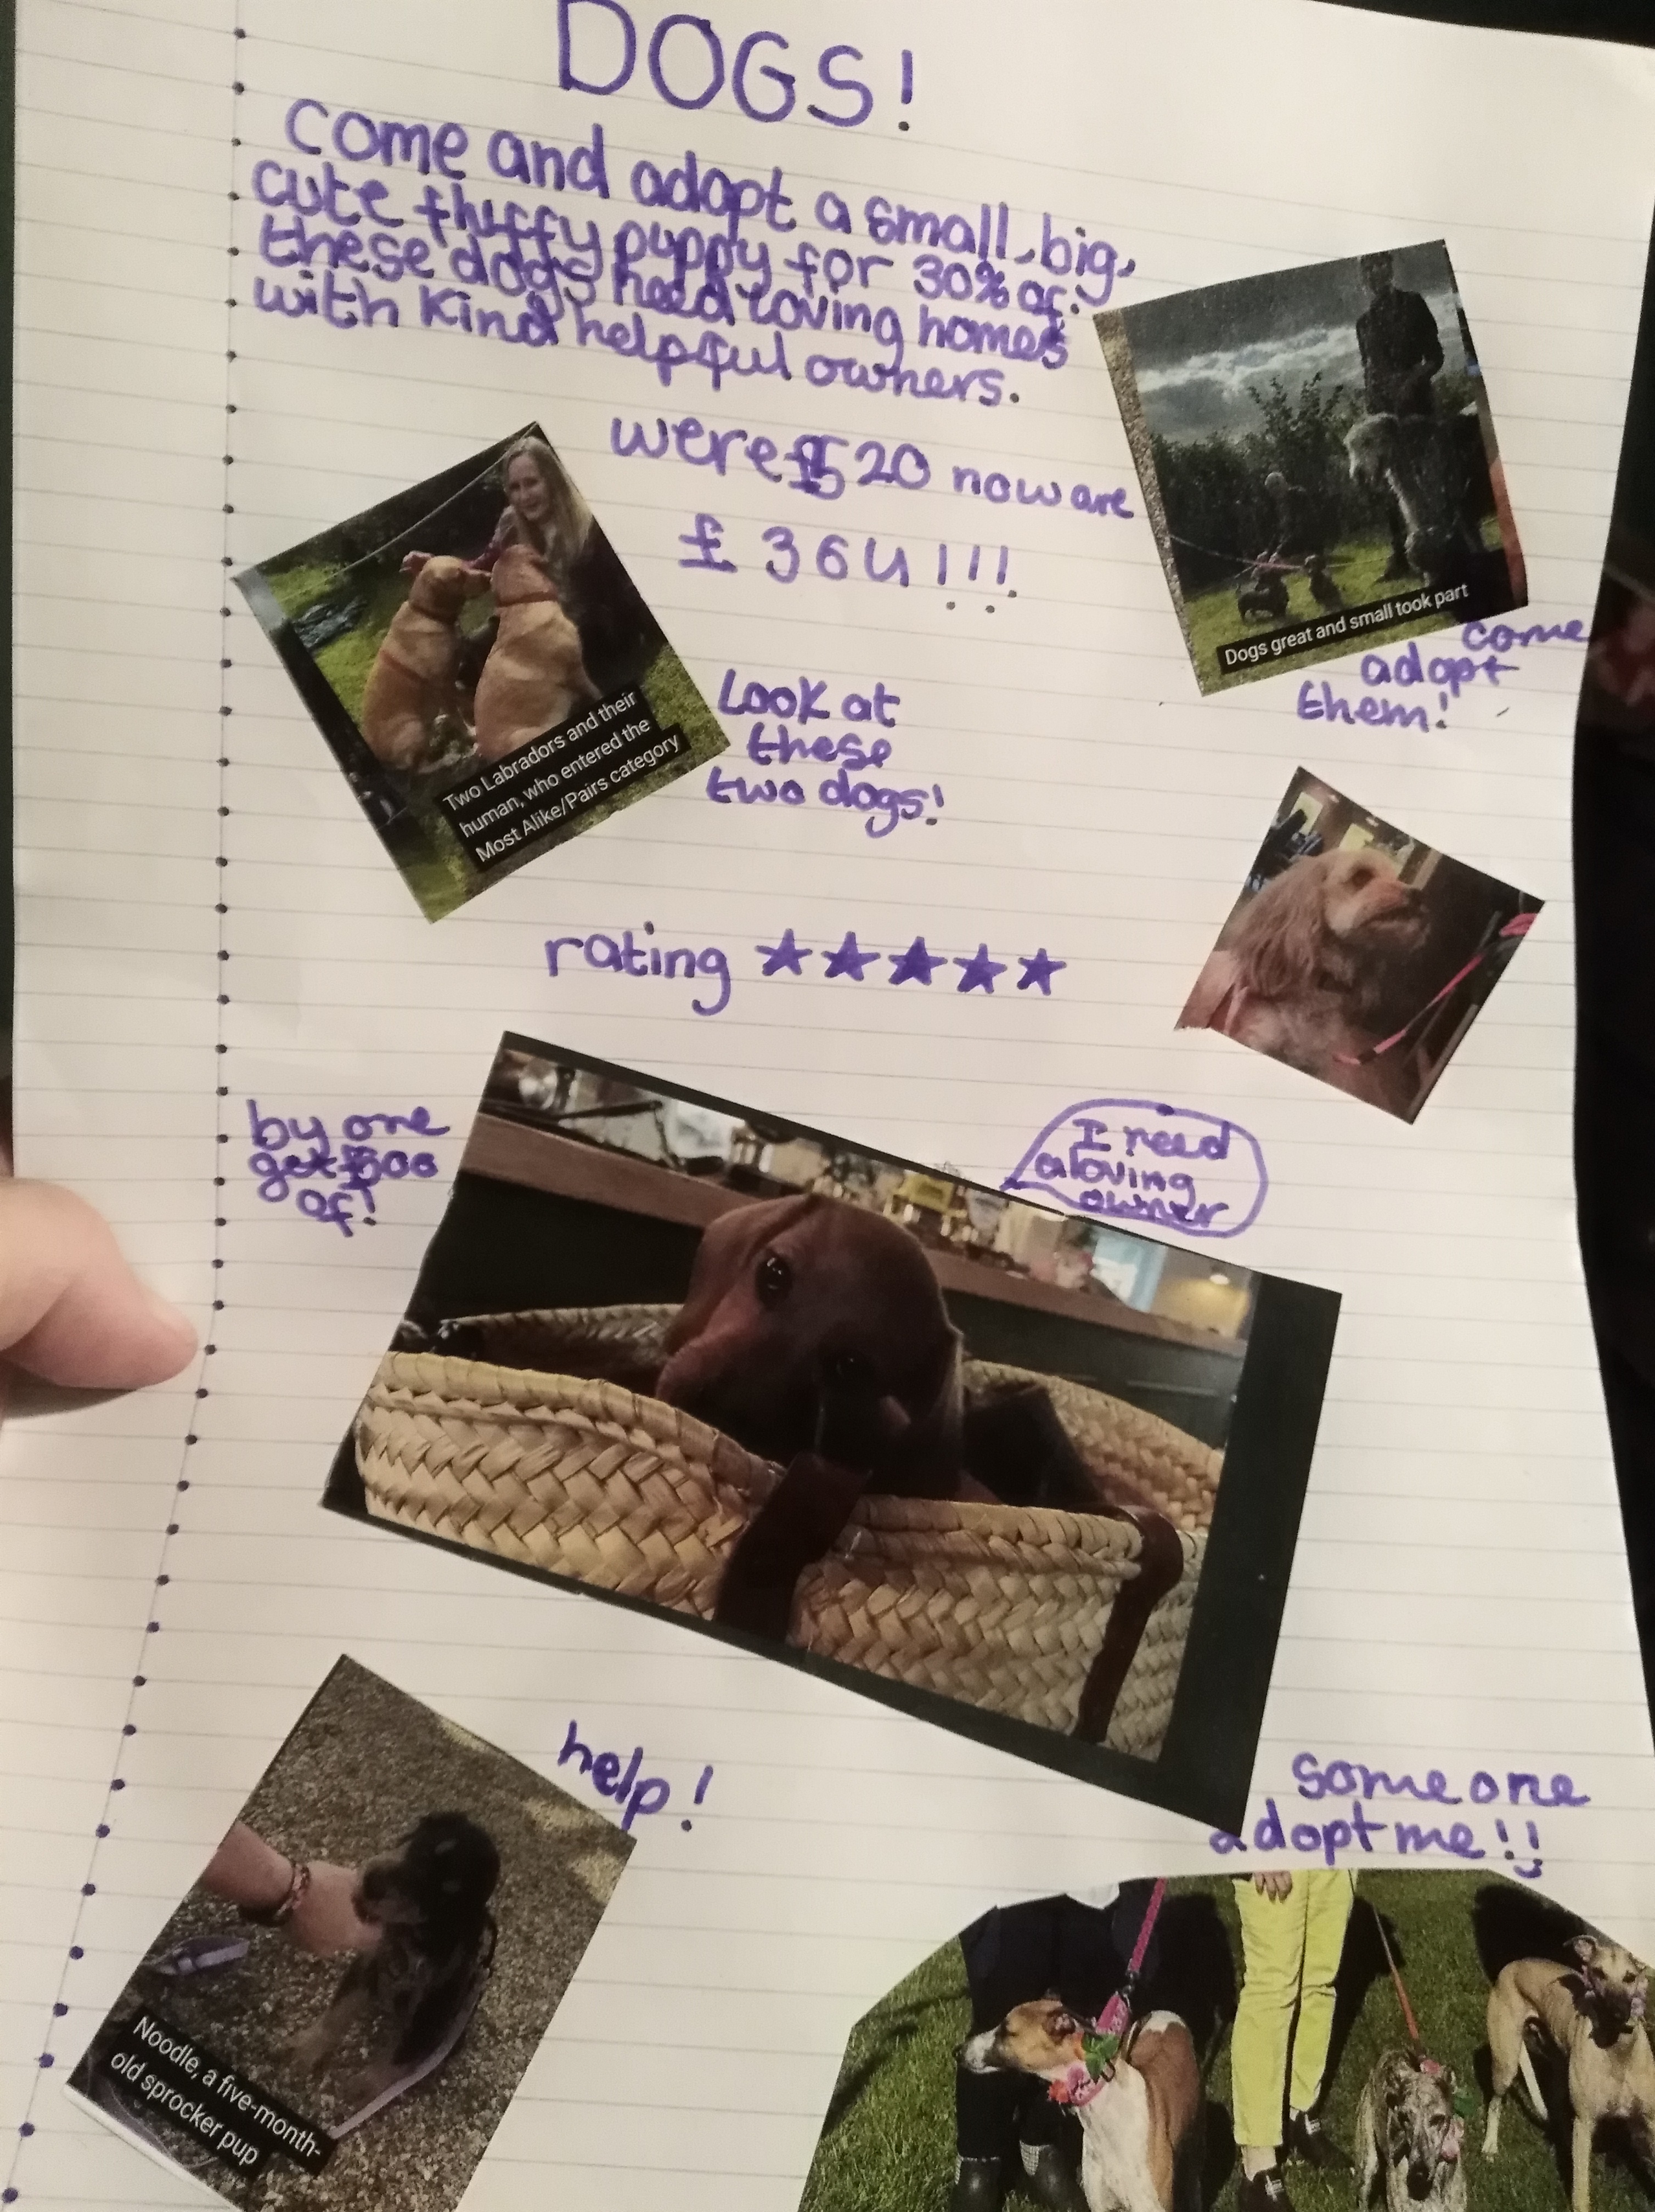 DOGS!
Come and adopt a small, big,
cute fluffy puppy for 30% of.
these dogs need loving homes
with kind helpful owners.
were £520 now are
£364!!!
Dogs great and small took part
come
adopt
them!
Two Labradors and their
human, who entered the
Most Alike/Pairs category
Look at
these
two dogs!
rating ★★★★★
by one
get
of!
I need
a loving
owner
help!
someone
adopt me!!
Noodle, a five-month-
old sprocker pup